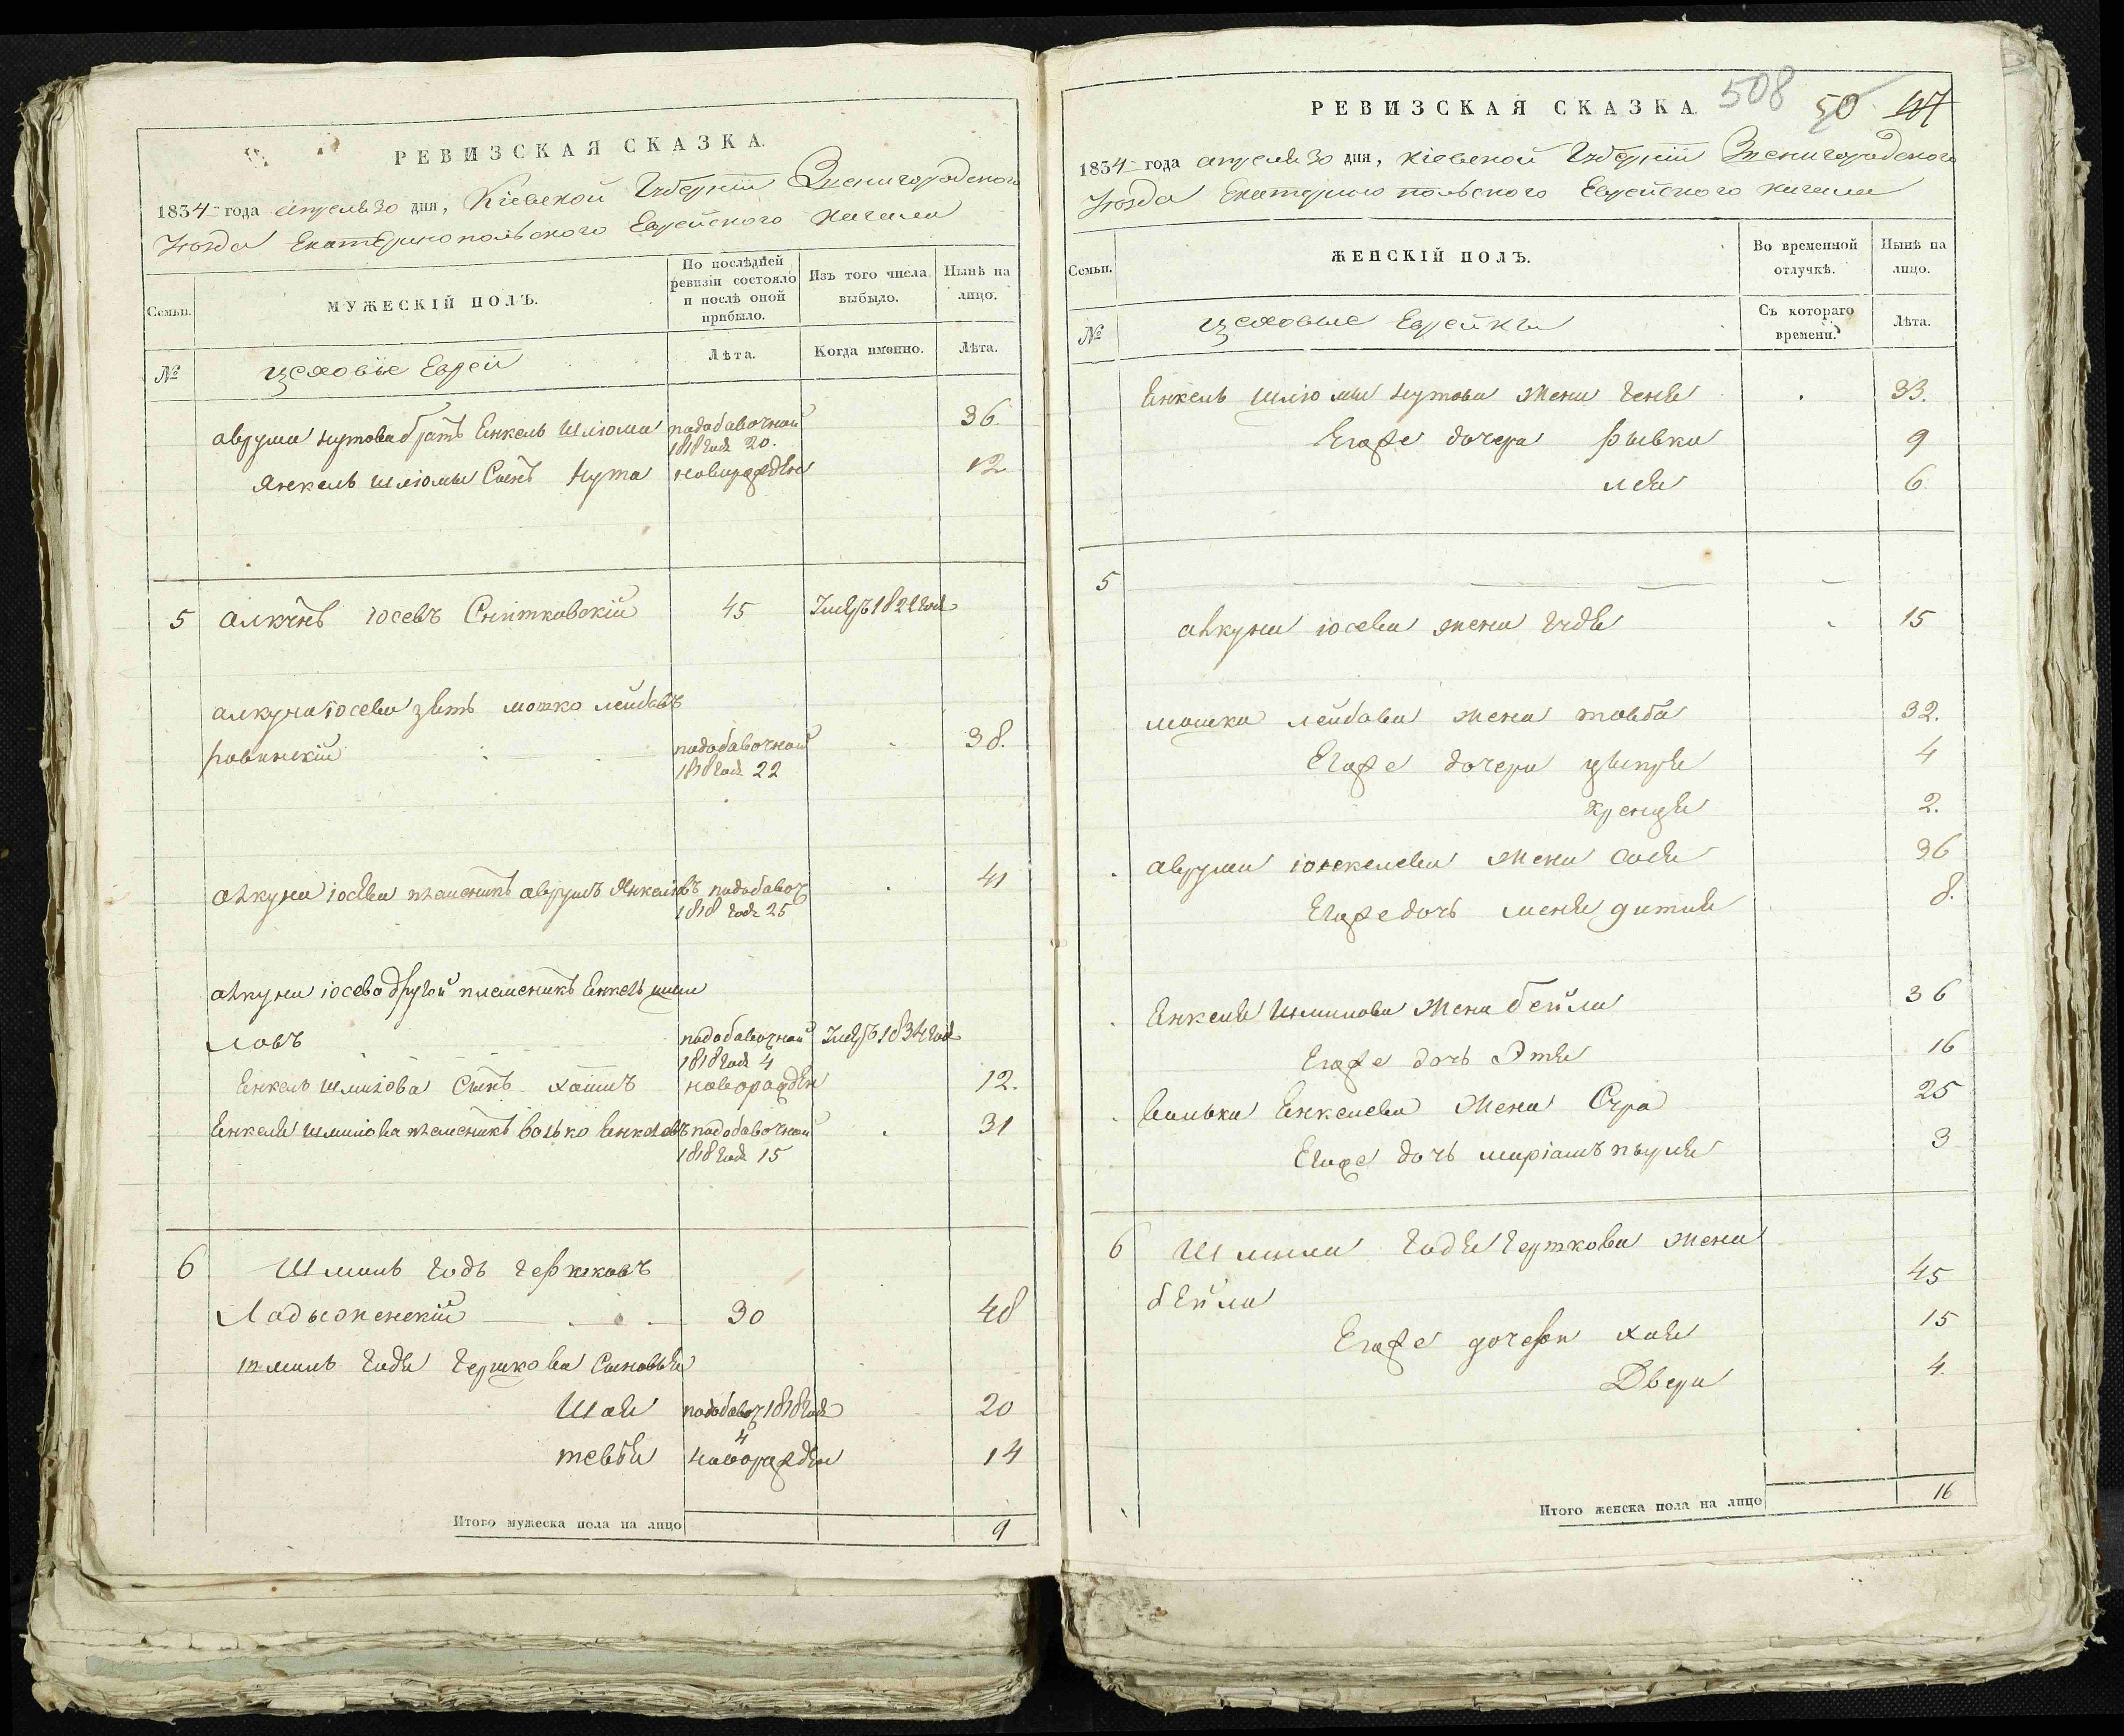 РЕВИЗСКАЯ СКАЗКА.
1834 года апреля 30 дня, Кіевской Губерніи Звенигородского
Уезда Екатеринопольского Еврейского кагала
Семьи.
МУЖЕСКІЙ ПОЛЪ.
По послѣдней ревизіи состояло и послѣ оной прибыло.
Изъ того числа выбыло.
Нынѣ на лицо.
№
цеховые Евреи
Лѣта.
Когда именно.
Лѣта.
аврума нутова братъ Енкель Шлюма
подобавочной 1818 года 20.
36.
Янкель шлюмы Сынъ Нута
новорожден
12
5 Алкунъ іосевъ Снитковскій
45
1822 год
алкуна іосева зять мошко лейбовъ
ровинскій
подобавочной 1818 года 22
38.
алкуна іосева племеникъ аврумъ Янкелевъ
подобавоч 1818 года 25
41
алкуна іосева другой племеникъ Енкель шми
ловъ
подобавочной 1818 года 4
1834 год
Енкель шмилова Сынъ хаимъ
новорожден
12.
Енкеля шмилова племеникъ волько Енкелевъ
подобавочной 1818 года 15
31
6 Шмиль годь гершковъ
Ладыженскій
30
48
шмиль годя гершкова Сыновья
Шая
подобавоч 1818 года 4
20
тевья
новорожден
14
Итого мужеска пола на лицо
9
РЕВИЗСКАЯ СКАЗКА.
508 50
1834 года апреля 30 дня, кіевской Губерніи Звенигородского
Уезда Екатеринопольского Еврейского кагала
Семьи.
ЖЕНСКІЙ ПОЛЪ.
Во временной отлучкѣ.
Нынѣ на лицо.
№
цеховые Еврейки
Съ котораго времени.
Лѣта.
Енкель шлюмы нутова жена геня
33.
Егоже дочера рывка
9
лея
6
5
алкуна іосева жена
15
мошка лейбова жена товба
32.
Егоже дочера ципря
4
2.
аврума юнкелева жена сося
36
Егоже дочь
8.
Енкеля шмилова жена бейла
36
Егоже дочь Этя
16
волька Енкелева жена Сура
25
Егоже дочь миріамъ
3
6 Шмила годя гершкова жена
бейла
45
Егоже дочери хая
15
Двера
4.
Итого женска пола на лицо
16